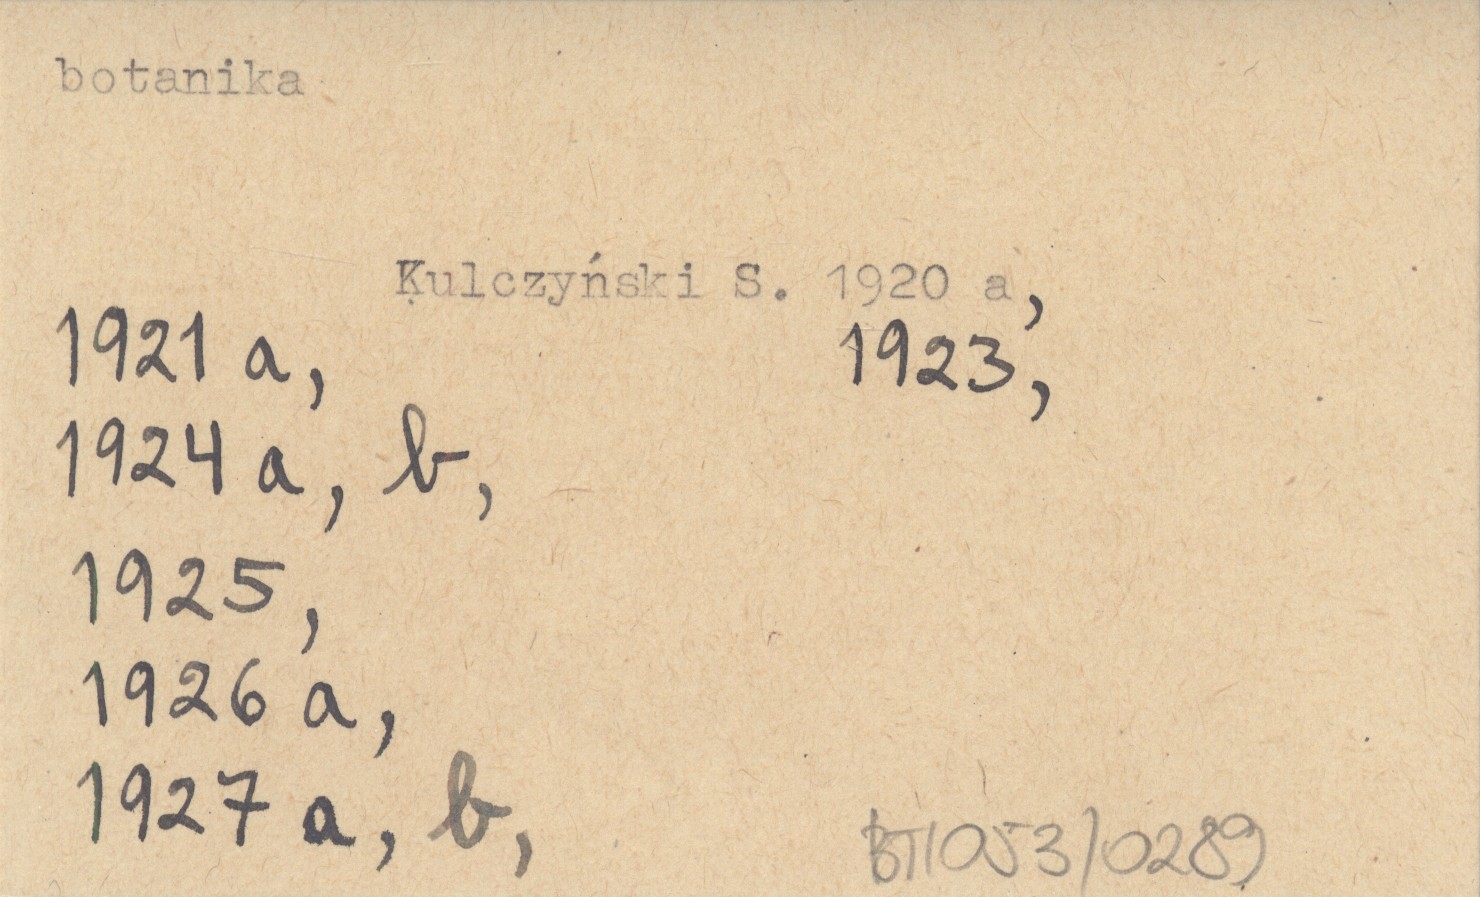 botanika
Kulczyński S. 1920 a,
1921 a, 1923,
1924 a, b,
1925,
1926 a,
1927 a, b,
BT/053/0289